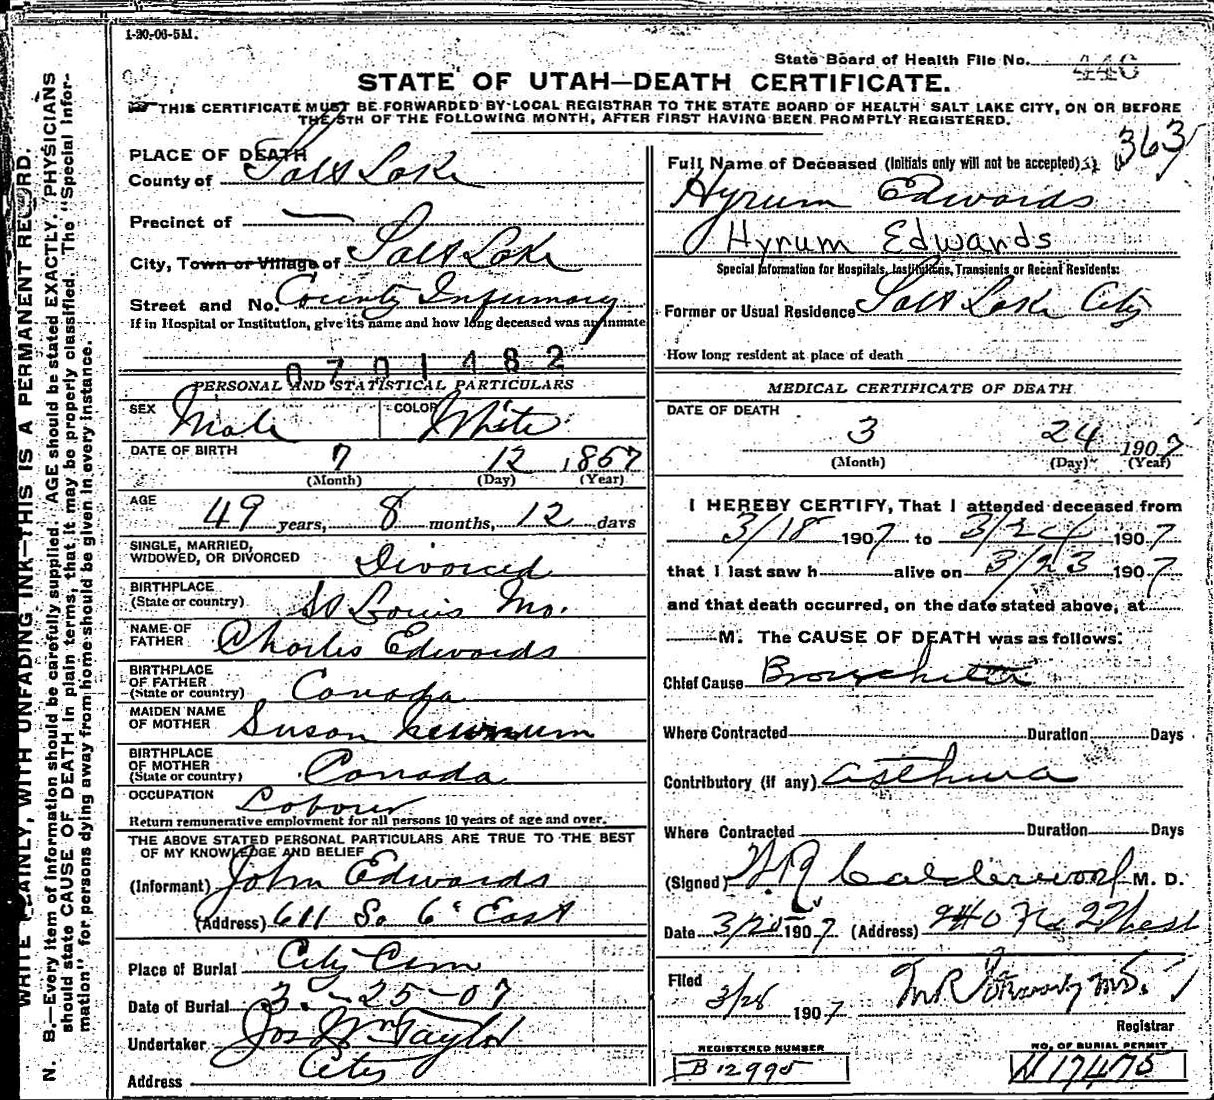 1-20-06-5M.
State Board of Health File No. 440
STATE OF UTAH—DEATH CERTIFICATE.
THIS CERTIFICATE MUST BE FORWARDED BY LOCAL REGISTRAR TO THE STATE BOARD OF HEALTH SALT LAKE CITY, ON OR BEFORE
THE 5TH OF THE FOLLOWING MONTH, AFTER FIRST HAVING BEEN PROMPTLY REGISTERED.
363
WRITE PLAINLY, WITH UNFADING INK—THIS IS A PERMANENT RECORD.
N. B.—Every item of information should be carefully supplied. AGE should be stated EXACTLY. PHYSICIANS
should state CAUSE OF DEATH in plain terms, that it may be properly classified. The "Special Infor-
mation" for persons dying away from home should be given in every instance.
PLACE OF DEATH
County of Salt Lake
Precinct of —
City, Town or Village of Salt Lake
Street and No. County Infirmary
If in Hospital or Institution, give its name and how long deceased was an inmate
0701482
PERSONAL AND STATISTICAL PARTICULARS
SEX Male COLOR White
DATE OF BIRTH 7 12 1857
(Month) (Day) (Year)
AGE 49 years, 8 months, 12 days
SINGLE, MARRIED,
WIDOWED, OR DIVORCED Divorced
BIRTHPLACE
(State or country) St Louis Mo.
NAME OF
FATHER Charles Edwards
BIRTHPLACE
OF FATHER
(State or country) Canada
MAIDEN NAME
OF MOTHER Susan
BIRTHPLACE
OF MOTHER
(State or country) Canada
OCCUPATION Labour
Return remunerative employment for all persons 10 years of age and over.
THE ABOVE STATED PERSONAL PARTICULARS ARE TRUE TO THE BEST
OF MY KNOWLEDGE AND BELIEF
(Informant) John Edwards
(Address) 611 So 6 East
Place of Burial City Cem
Date of Burial 3-25-07
Undertaker Jos Wm Taylor
Address City
Full Name of Deceased (Initials only will not be accepted)
Hyrum Edwards
Hyrum Edwards
Special Information for Hospitals, Institutions, Transients or Recent Residents:
Former or Usual Residence Salt Lake City
How long resident at place of death
MEDICAL CERTIFICATE OF DEATH
DATE OF DEATH
3 24 1907
(Month) (Day) (Year)
I HEREBY CERTIFY, That I attended deceased from
3/18 1907 to 3/24 1907
that I last saw h alive on 3/23 1907
and that death occurred, on the date stated above, at
M. The CAUSE OF DEATH was as follows:
Chief Cause Bronchitis
Where Contracted Duration Days
Contributory (if any) asthma
Where Contracted Duration Days
(Signed) W.R. Calderwood M. D.
Date 3/25 1907 (Address) 240 No 2 West
Filed 3/28 1907
Registrar
REGISTERED NUMBER
B 12995
NO. OF BURIAL PERMIT
17475